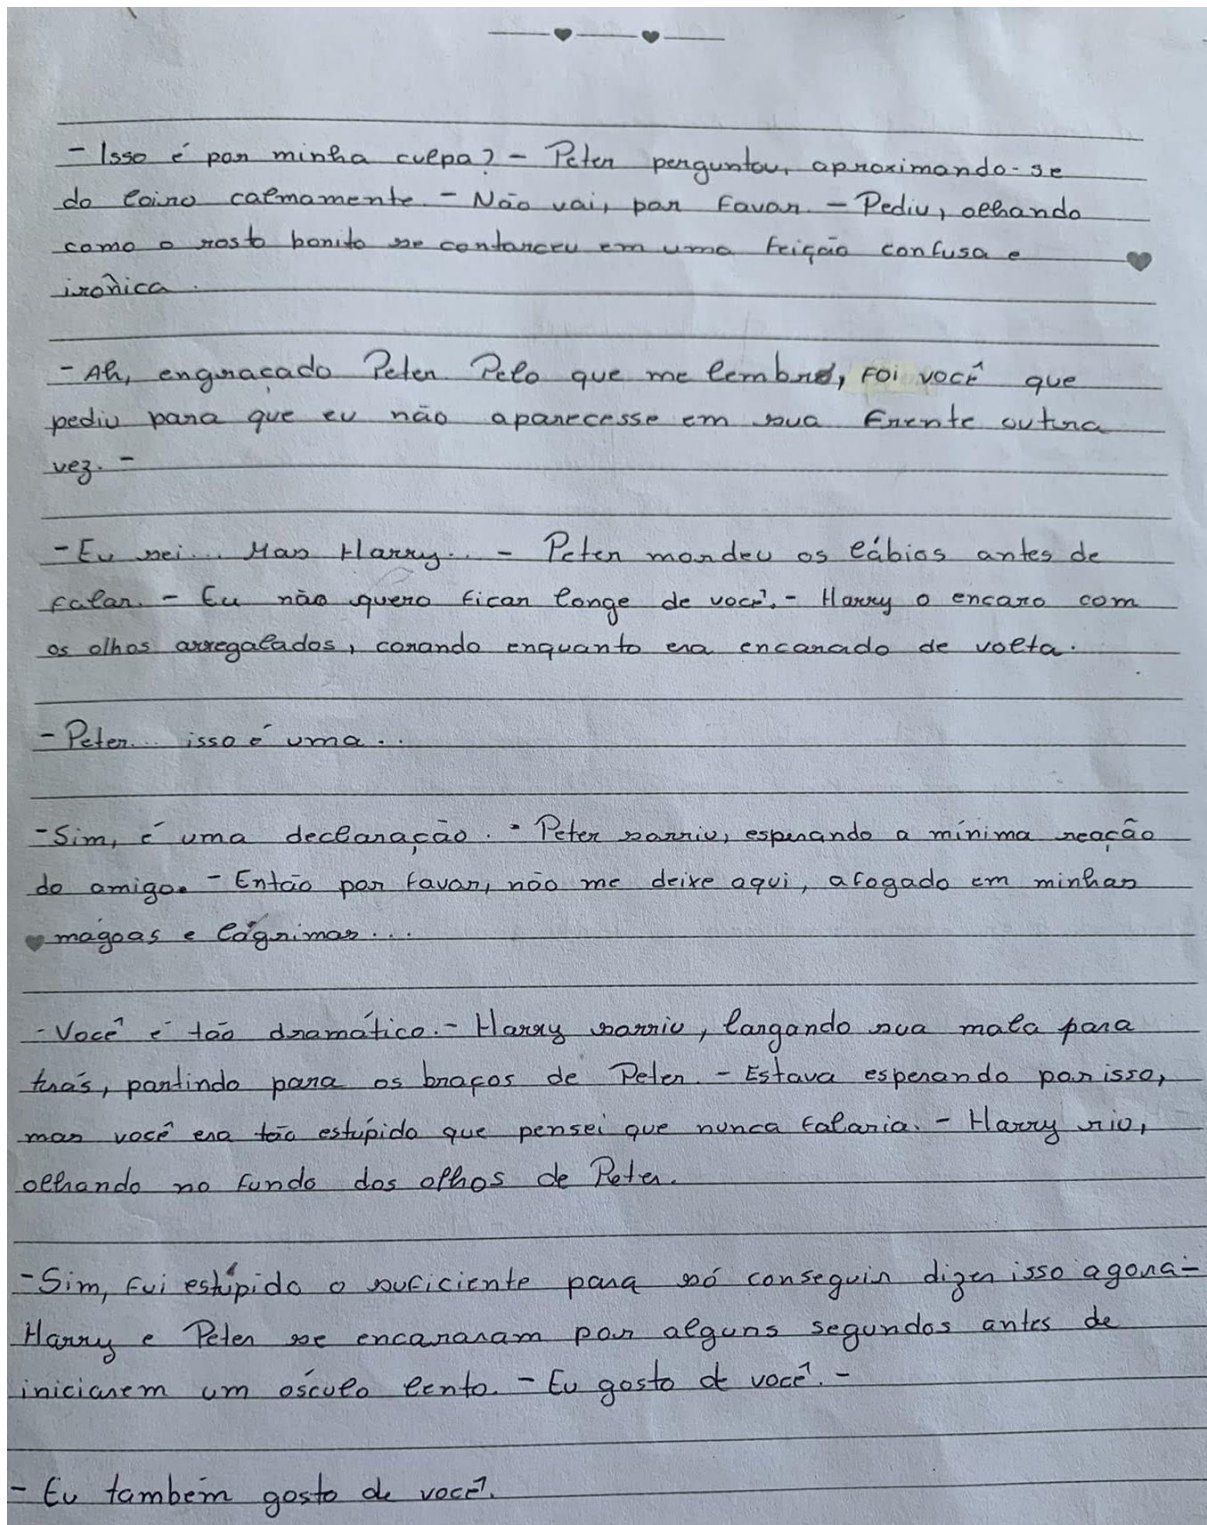 - Isso é por minha culpa? - Peter perguntou, aproximando-se
do loiro calmamente. - Não vai, por favor. - Pediu, olhando
como o rosto bonito se contorceu em uma feição confusa e
irônica.
- Ah, engraçado Peter. Pelo que me lembro, foi você que
pediu para que eu não aparecesse em sua frente outra
vez. -
- Eu sei... Mas Harry... - Peter mordeu os lábios antes de
falar. - Eu não quero ficar longe de você. - Harry o encaro com
os olhos arregalados, corando enquanto era encarado de volta.
- Peter... isso é uma...
- Sim, é uma declaração. - Peter sorriu, esperando a mínima reação
do amigo. - Então por favor, não me deixe aqui, afogado em minhas
mágoas e lágrimas...
- Você é tão dramático. - Harry sorriu, largando sua mala para
trás, partindo para os braços de Peter. - Estava esperando por isso,
mas você era tão estúpido que pensei que nunca falaria. - Harry rio,
olhando no fundo dos olhos de Peter.
- Sim, fui estúpido o suficiente para só conseguir dizer isso agora -
Harry e Peter se encararam por alguns segundos antes de
iniciarem um ósculo lento. - Eu gosto de você. -
- Eu também gosto de você.